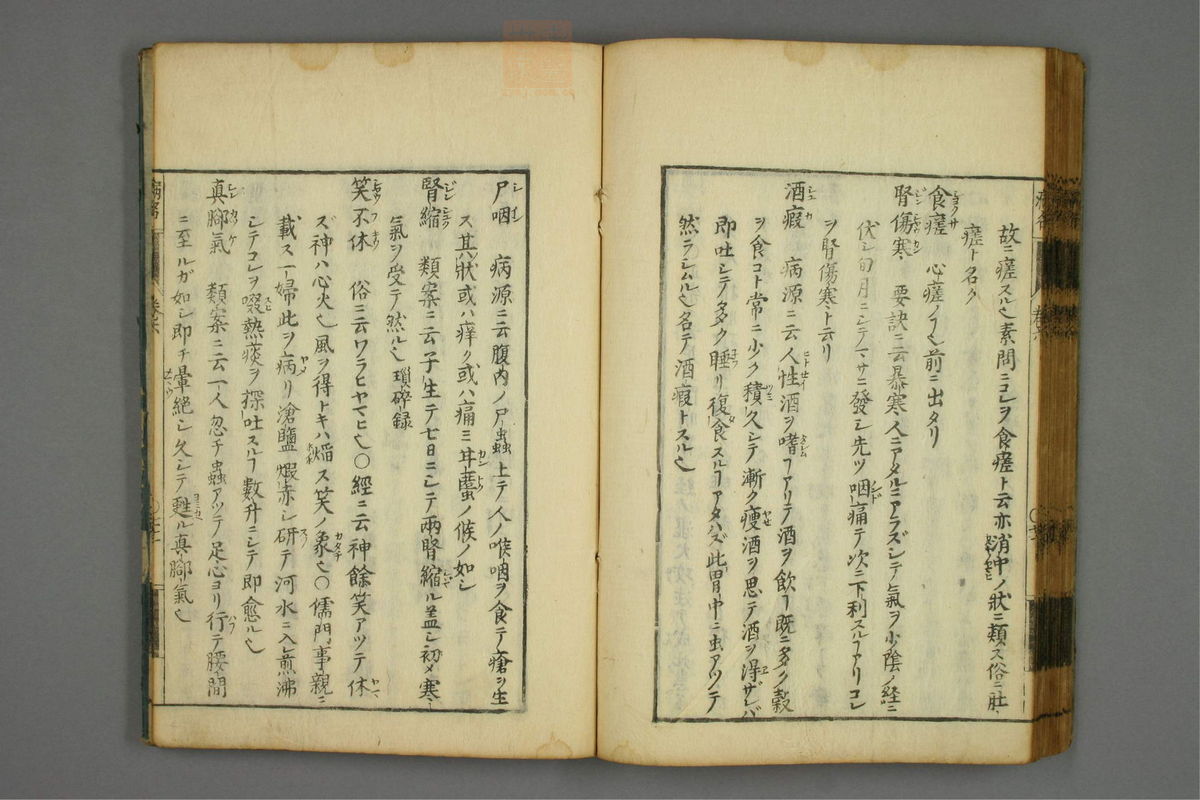 故ニ瘥スル也素問ニコレヲ食㾐ト云亦消中ノ狀ニ類ス俗ニ
㾐ト名ク
食㾐 心㾐ノ前ニ出タリ
腎傷寒 要訣ニ云暴寒人ニアタルニアラズシテ氣ヲ少陰ノ経ニ
伏シ旬月ニシテマサニ發シ先ツ咽痛テ次ニ下利スルヿアリコレ
ヲ腎傷寒ト云リ
酒瘕 病源ニ云人性酒ヲ嗜ヿアリテ酒ヲ飲ヿ既ニ多ク穀
ヲ食コト常ニ少ク積久シテ漸ク瘦酒ヲ思テ酒ヲ得ザレバ
即吐シテ多ク睡リ復食スルヿアタハズ此胃中ニ虫アツテ
然ラシムル也名テ酒瘕トスル也
尸咽 病源ニ云腹内ノ尸蟲上テ人ノ喉咽ヲ食テ瘡ヲ生
ス其狀或ハ痒ク或ハ痛ミ甘䘌ノ候ノ如シ
腎縮 類案ニ云子生テ七日ニシテ兩腎縮ル盖シ初メ寒
氣ヲ受テ然ル也 瑣碎録
笑不休 俗ニ云ワラヒヤマヒ也〇經ニ云神餘笑アツテ休
ズ神ハ心火也風ヲ得トキハ焰ス笑ノ象也〇儒門事親ニ
載ス一婦此ヲ病リ滄鹽煆赤シ研テ河水ニ入煎沸
シテコレヲ啜熱痰ヲ探吐スルヿ數升ニシテ即愈ル也
真腳氣 類案ニ云一人忽チ蟲アツテ足心ヨリ行テ腰間
ニ至ルガ如シ即チ暈絶シ久シテ甦ル真腳氣也